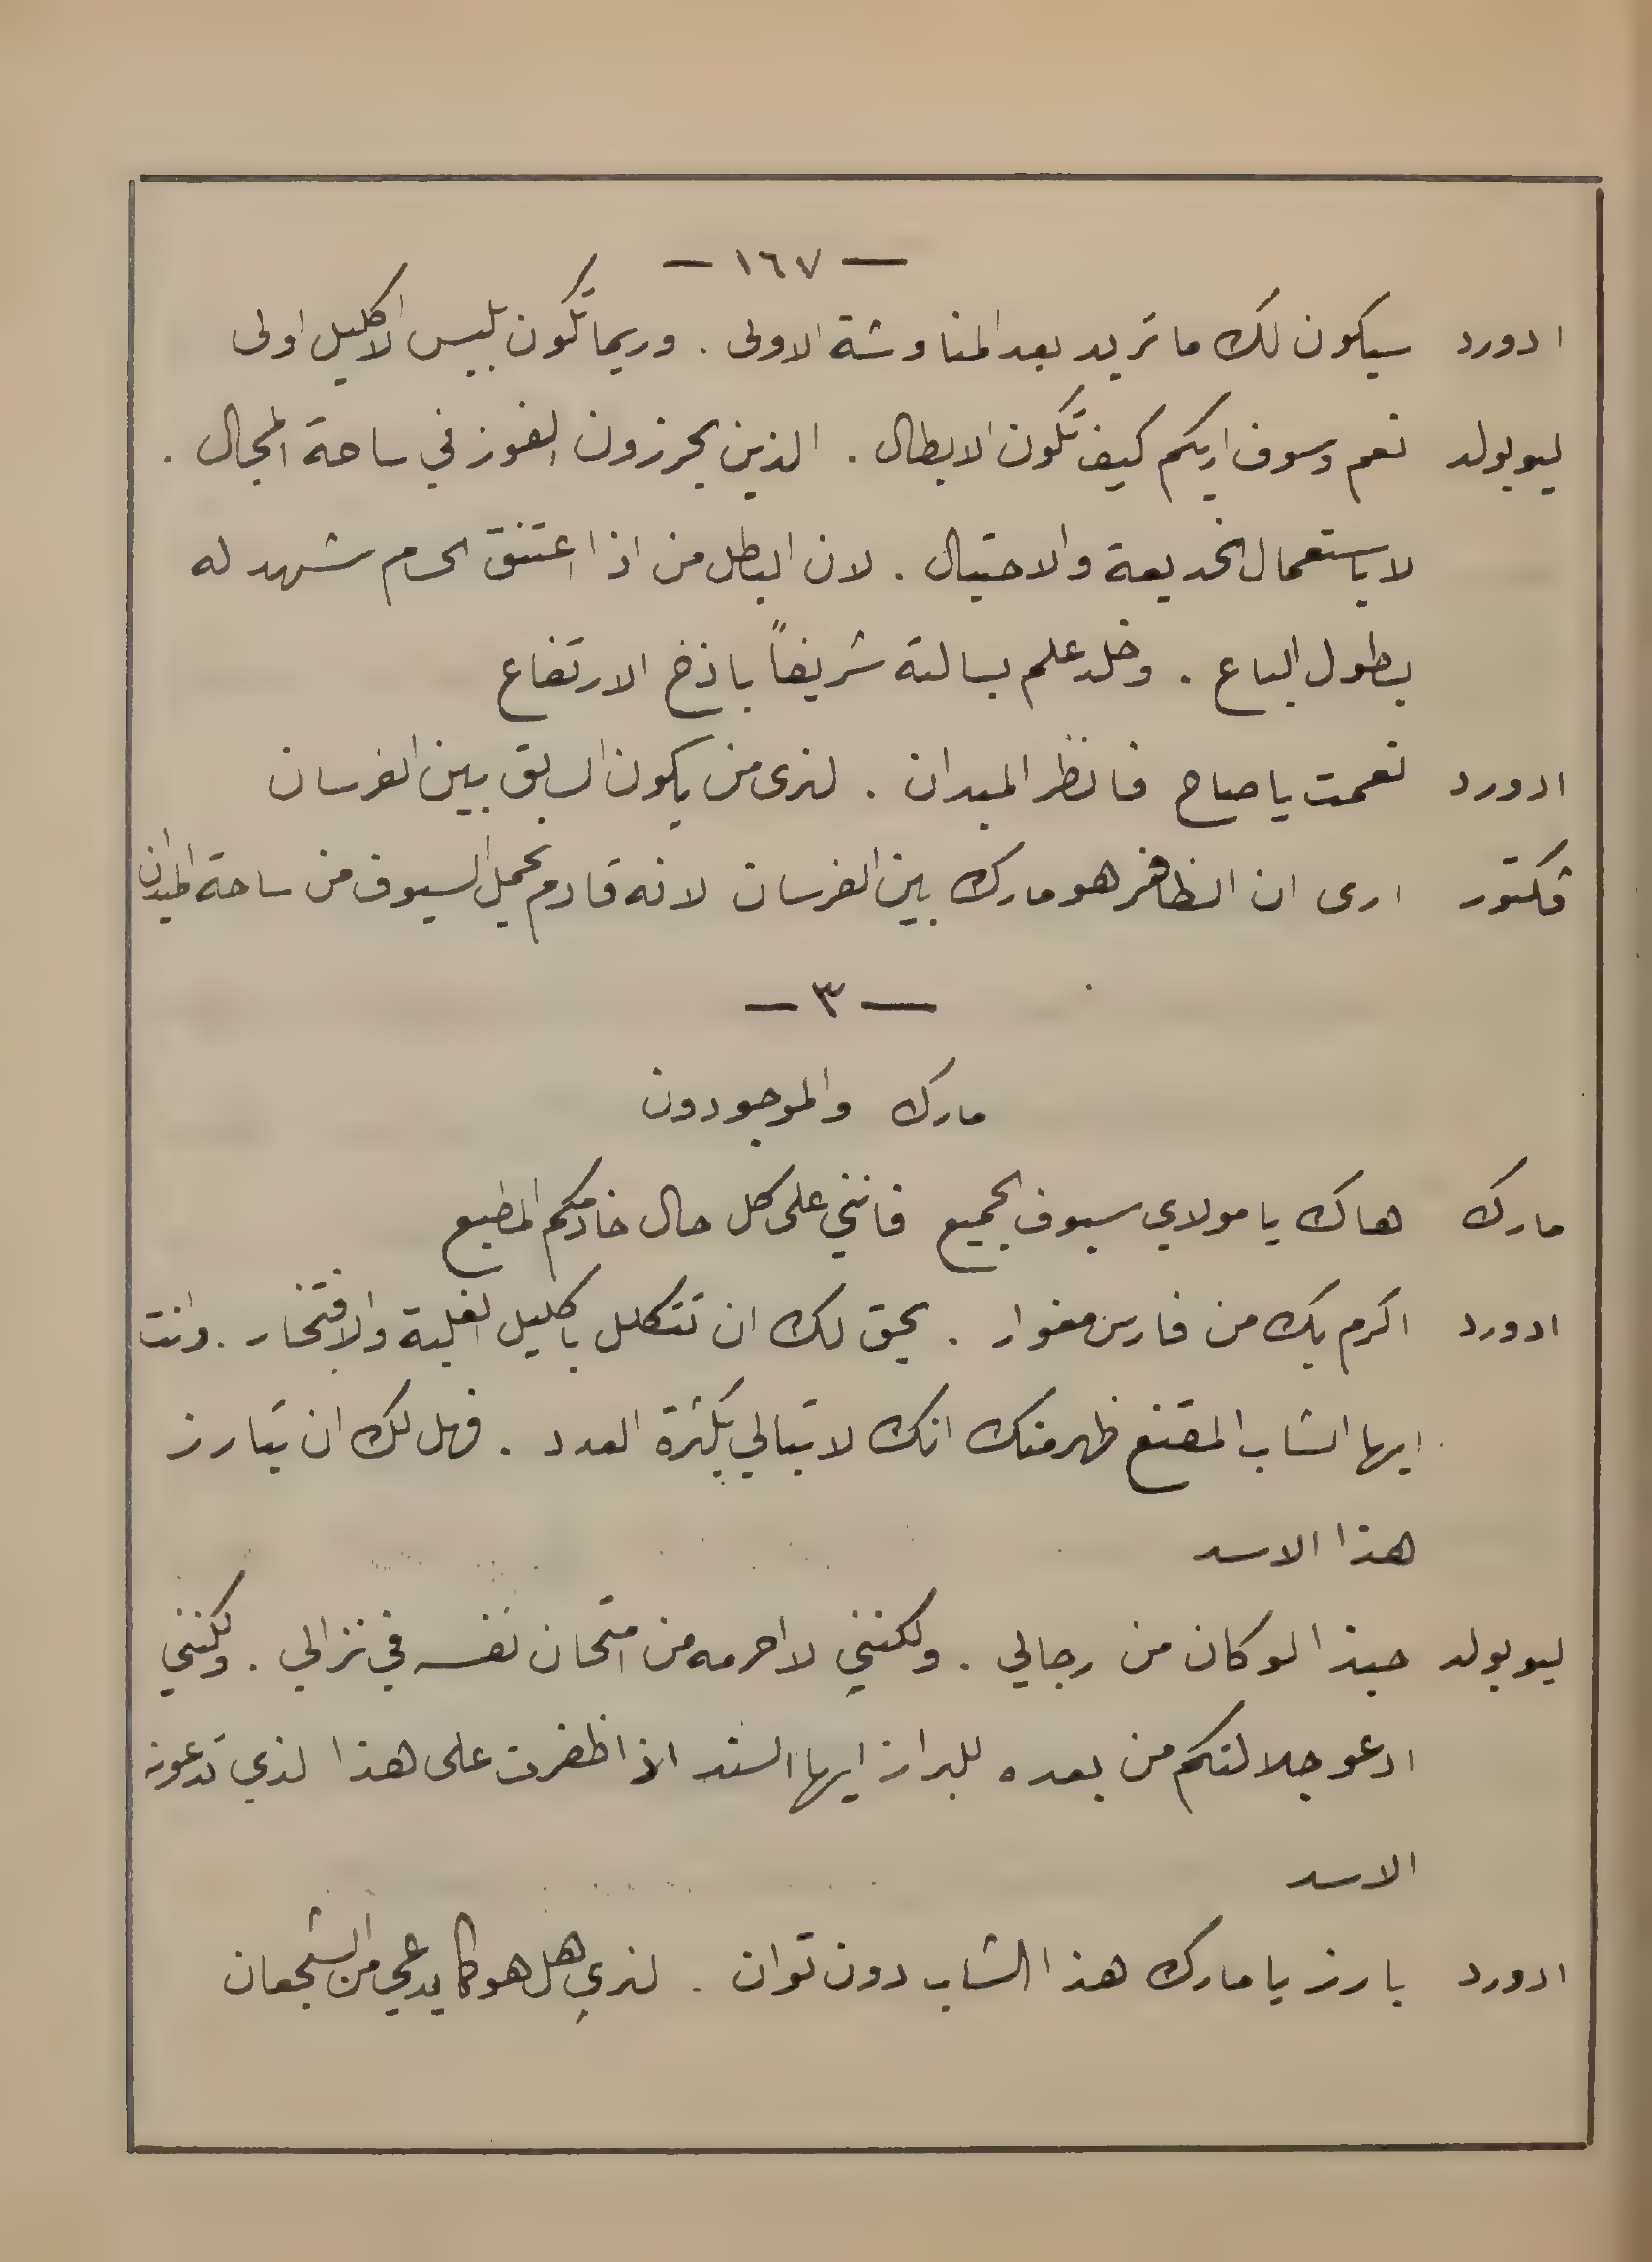 — ١٦٧ —
ادورد سيكون لك ما تريد بعد المناوشة الاولى . وربما تكون بلبس الاكليل اولى
ليوبولد نعم وسوف اريكم كيف تكون الابطال . الذين يحرزون الفوز في ساحة المجال .
لا باستعمال الخديعة والاحتيال . لان البطل من اذا اعتنق الحسام شهد له
بطول الباع . وخلد علم بسالته شريفاً باذخ الارتفاع
ادورد نعمت يا صاح فانظر الميدان . لنرى من يكون السابق بين الفرسان
فكتور ارى ان الظافر هو مارك بين الفرسان لانه قادم بحمل السيوف من ساحة الميدان
— ٣ —
مارك والموجودون
مارك هاك يا مولاي سيوف الجميع فانني على كل حال خادمكم المطيع
ادورد اكرم بك من فارس مغوار . يحق لك ان تتكلل باكليل الغلبة والافتخار . وانت
ايها الشاب المقنع ظهر منك انك لا تبالي بكثرة العدد . فهل لك ان تبارز
هذا الاسد
ليوبولد حبذا لو كان من رجالي . ولكنني لا احرمه من امتحان نفسه في نزالي . ولكنني
ادعو جلالتكم من بعده للبراز ايها السند اذا ظفرت على هذا لذي تدعونه
الاسد
ادورد بارز يا مارك هذا الشاب دون توان . لنري هل هو كما يدعي من الشجعان